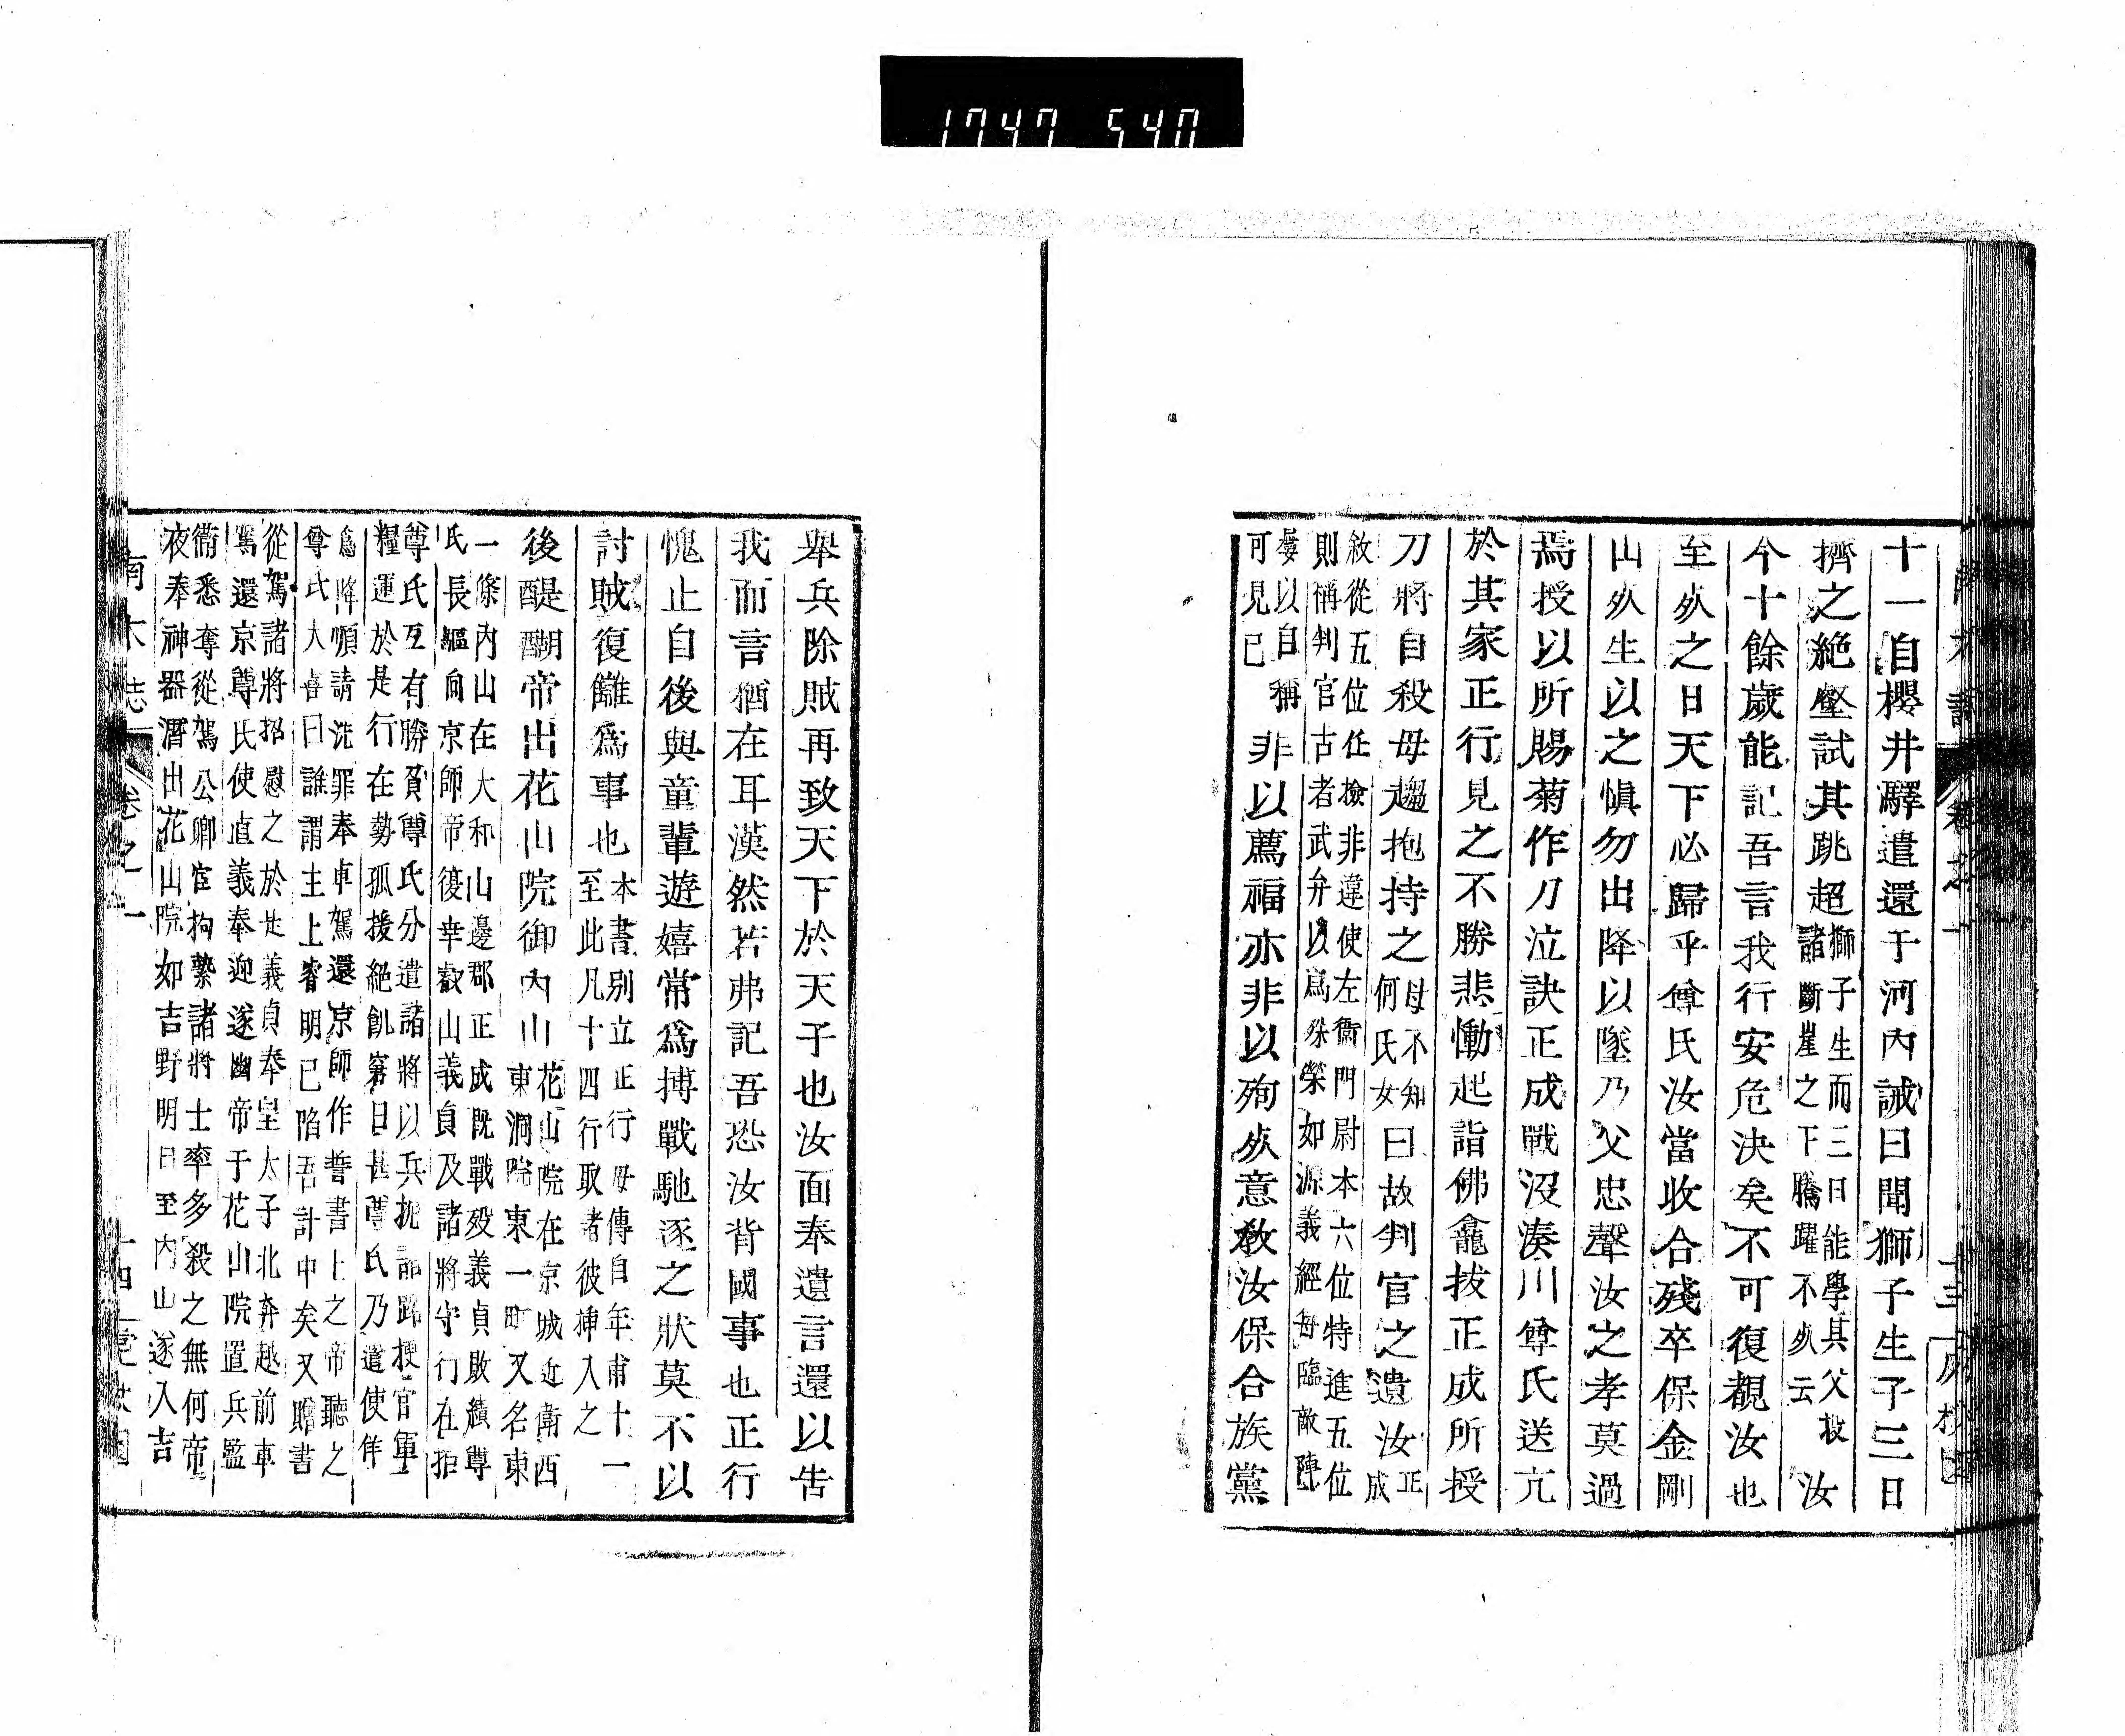 1747 540
十一自櫻井驛遣還于河內誡曰聞獅子生子三日
擠之絕壑試其跳超獅子生而三日能學其父投諸斷崖之下騰躍不死云汝
今十餘歲能記吾言我行安危決矣不可復覩汝也
至死之日天下必歸乎尊氏汝當收合殘卒保金剛
山死生以之愼勿出降以墜乃父忠聲汝之孝莫過
焉授以所賜菊作刀泣訣正成戰沒湊川尊氏送亢
於其家正行見之不勝悲慟起詣佛龕拔正成所授
刀將自殺母趨抱持之母不知何氏女曰故判官之遺汝正成
敘從五位任撿非違使左衞門尉本六位特進五位則稱判官古者武弁以爲殊榮如源義經每臨敵陣
屢以自稱可見已非以薦福亦非以殉死意敎汝保合族黨
舉兵除賊再致天下於天子也汝面奉遺言還以告
我而言猶在耳漠然若弗記吾恐汝背國事也正行
愧止自後與童輩遊嬉常爲搏戰馳逐之狀莫不以
討賊復讎爲事也本書別立正行母傳自年甫十一至此凡十四行取諸彼挿入之
後醍醐帝出花山院御內山花山院在京城近衛西東洞院東一町又名東
一條內山在大和山邊郡正成旣戰歿義貞敗績尊氏長驅向京師帝復幸叡山義貞及諸將守行在拒
尊氏互有勝負尊氏分遣諸將以兵扼諸路梗官軍糧運於是行在勢孤援絕飢窘日甚尊氏乃遣使佯
爲降順請洗罪奉車駕還京師作誓書上之帝聽之尊氏大喜曰誰謂主上睿明已陷吾計中矣又贈書
從駕諸將招慰之於是義貞奉皇太子北奔越前車駕還京尊氏使直義奉迎遂幽帝于花山院置兵監
衞悉奪從駕公卿官拘縶諸將士率多殺之無何帝夜奉神器潛出花山院如吉野明日至內山遂入吉
南木誌 卷之一 十四